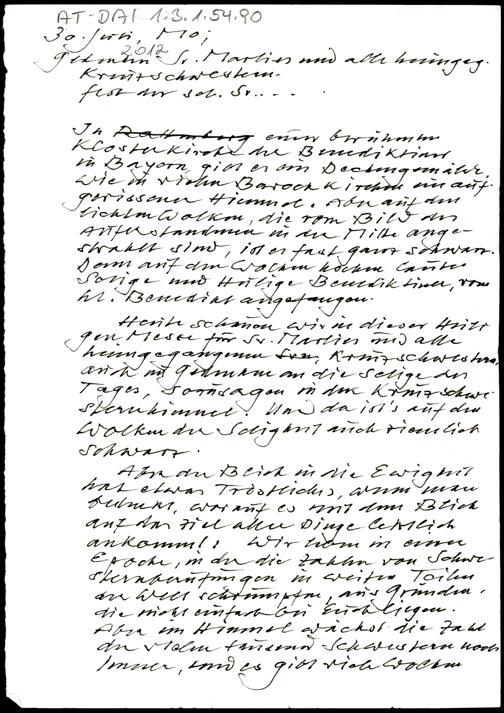 AT-DAI 1.3.1.54.90
30. Juni, Mo;
2012
Gedenken Sr. Marlies und alle heimgeg.
Kreuzschwestern.
Fest der sel. Sr....
In Rattenberg einer berühmten
Klosterkirche der Benediktiner
in Bayern gibt es ein Deckengemälde,
wie in vielen Barockkirchen ein auf-
gerissener Himmel. Aber auf den
lichten Wolken, die vom Bild des
Auferstandenen in der Mitte ange-
strahlt sind, ist es fast ganz schwarz.
Denn auf den Wolken hocken lauter
Selige und Heilige Benediktiner, vom
hl. Benedikt angefangen.
Heute schauen wir in dieser Heili-
gen Messe für Sr. Marlies und alle
heimgegangenen Kreuzschwestern,
auch im Gedenken an die Selige des
Tages, sozusagen in den Kreuzschwe-
sternhimmel. Und da ist's auf den
Wolken der Seligkeit auch ziemlich
schwarz.
Aber der Blick in die Ewigkeit
hat etwas Tröstliches, wenn man
bedenkt, worauf es mit dem Blick
auf das Ziel aller Dinge letztlich
ankommt: Wir leben in einer
Epoche, in der die Zahlen von Schwe-
sternberufungen in weiten Teilen
der Welt schrumpfen, aus Gründen,
die nicht einfach bei Euch liegen.
Aber im Himmel wächst die Zahl
der vielen tausend Schwestern noch
immer, und es gibt viele Wolken